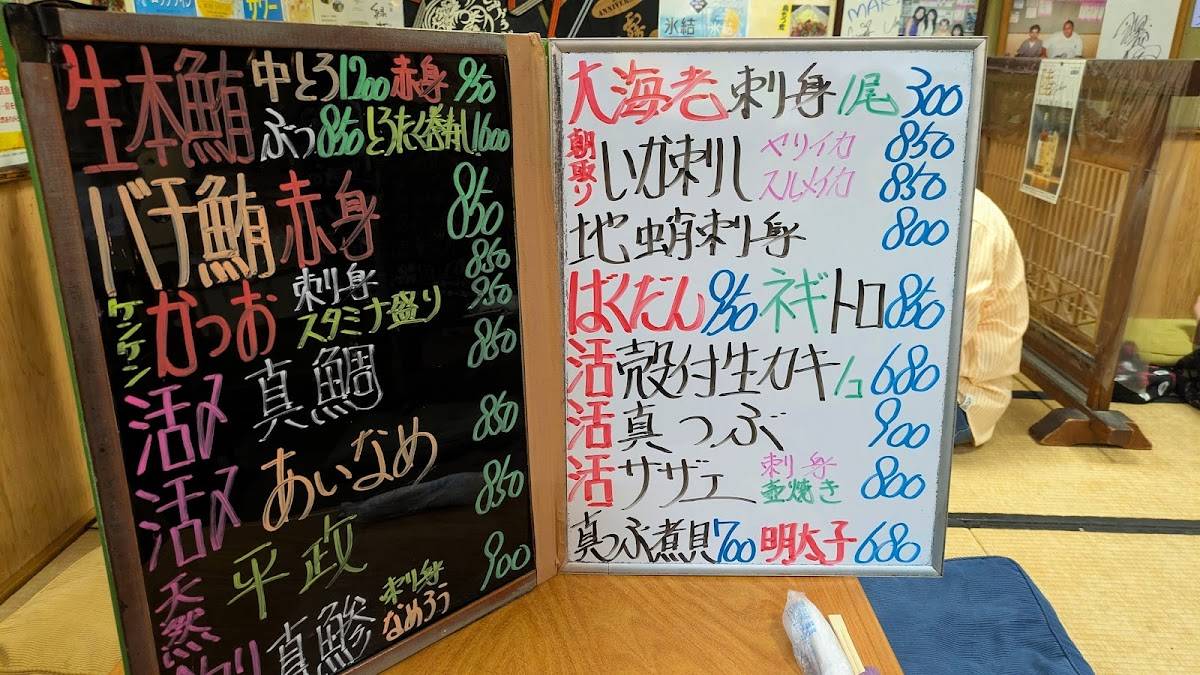 生本鮪 中とろ1200 赤身 950
ぶつ850 とろたく巻有り1600
バチ鮪赤身 850
ケンケン かつお 刺身 850
スタミナ盛り 950
活〆 真鯛 850
活〆 あいなめ 850
天然 平政 850
真鯵 刺身 なめろう 900
大海老刺身 1尾 300
朝取り いか刺し ヤリイカ 850
スルメイカ 850
地蛸刺身 800
ばくだん 950 ネギトロ 850
活 殻付生カキ 1コ 680
活 真つぶ 900
活 サザエ 刺身 壺焼き 800
真つぶ煮貝 700 明太子 680
氷結